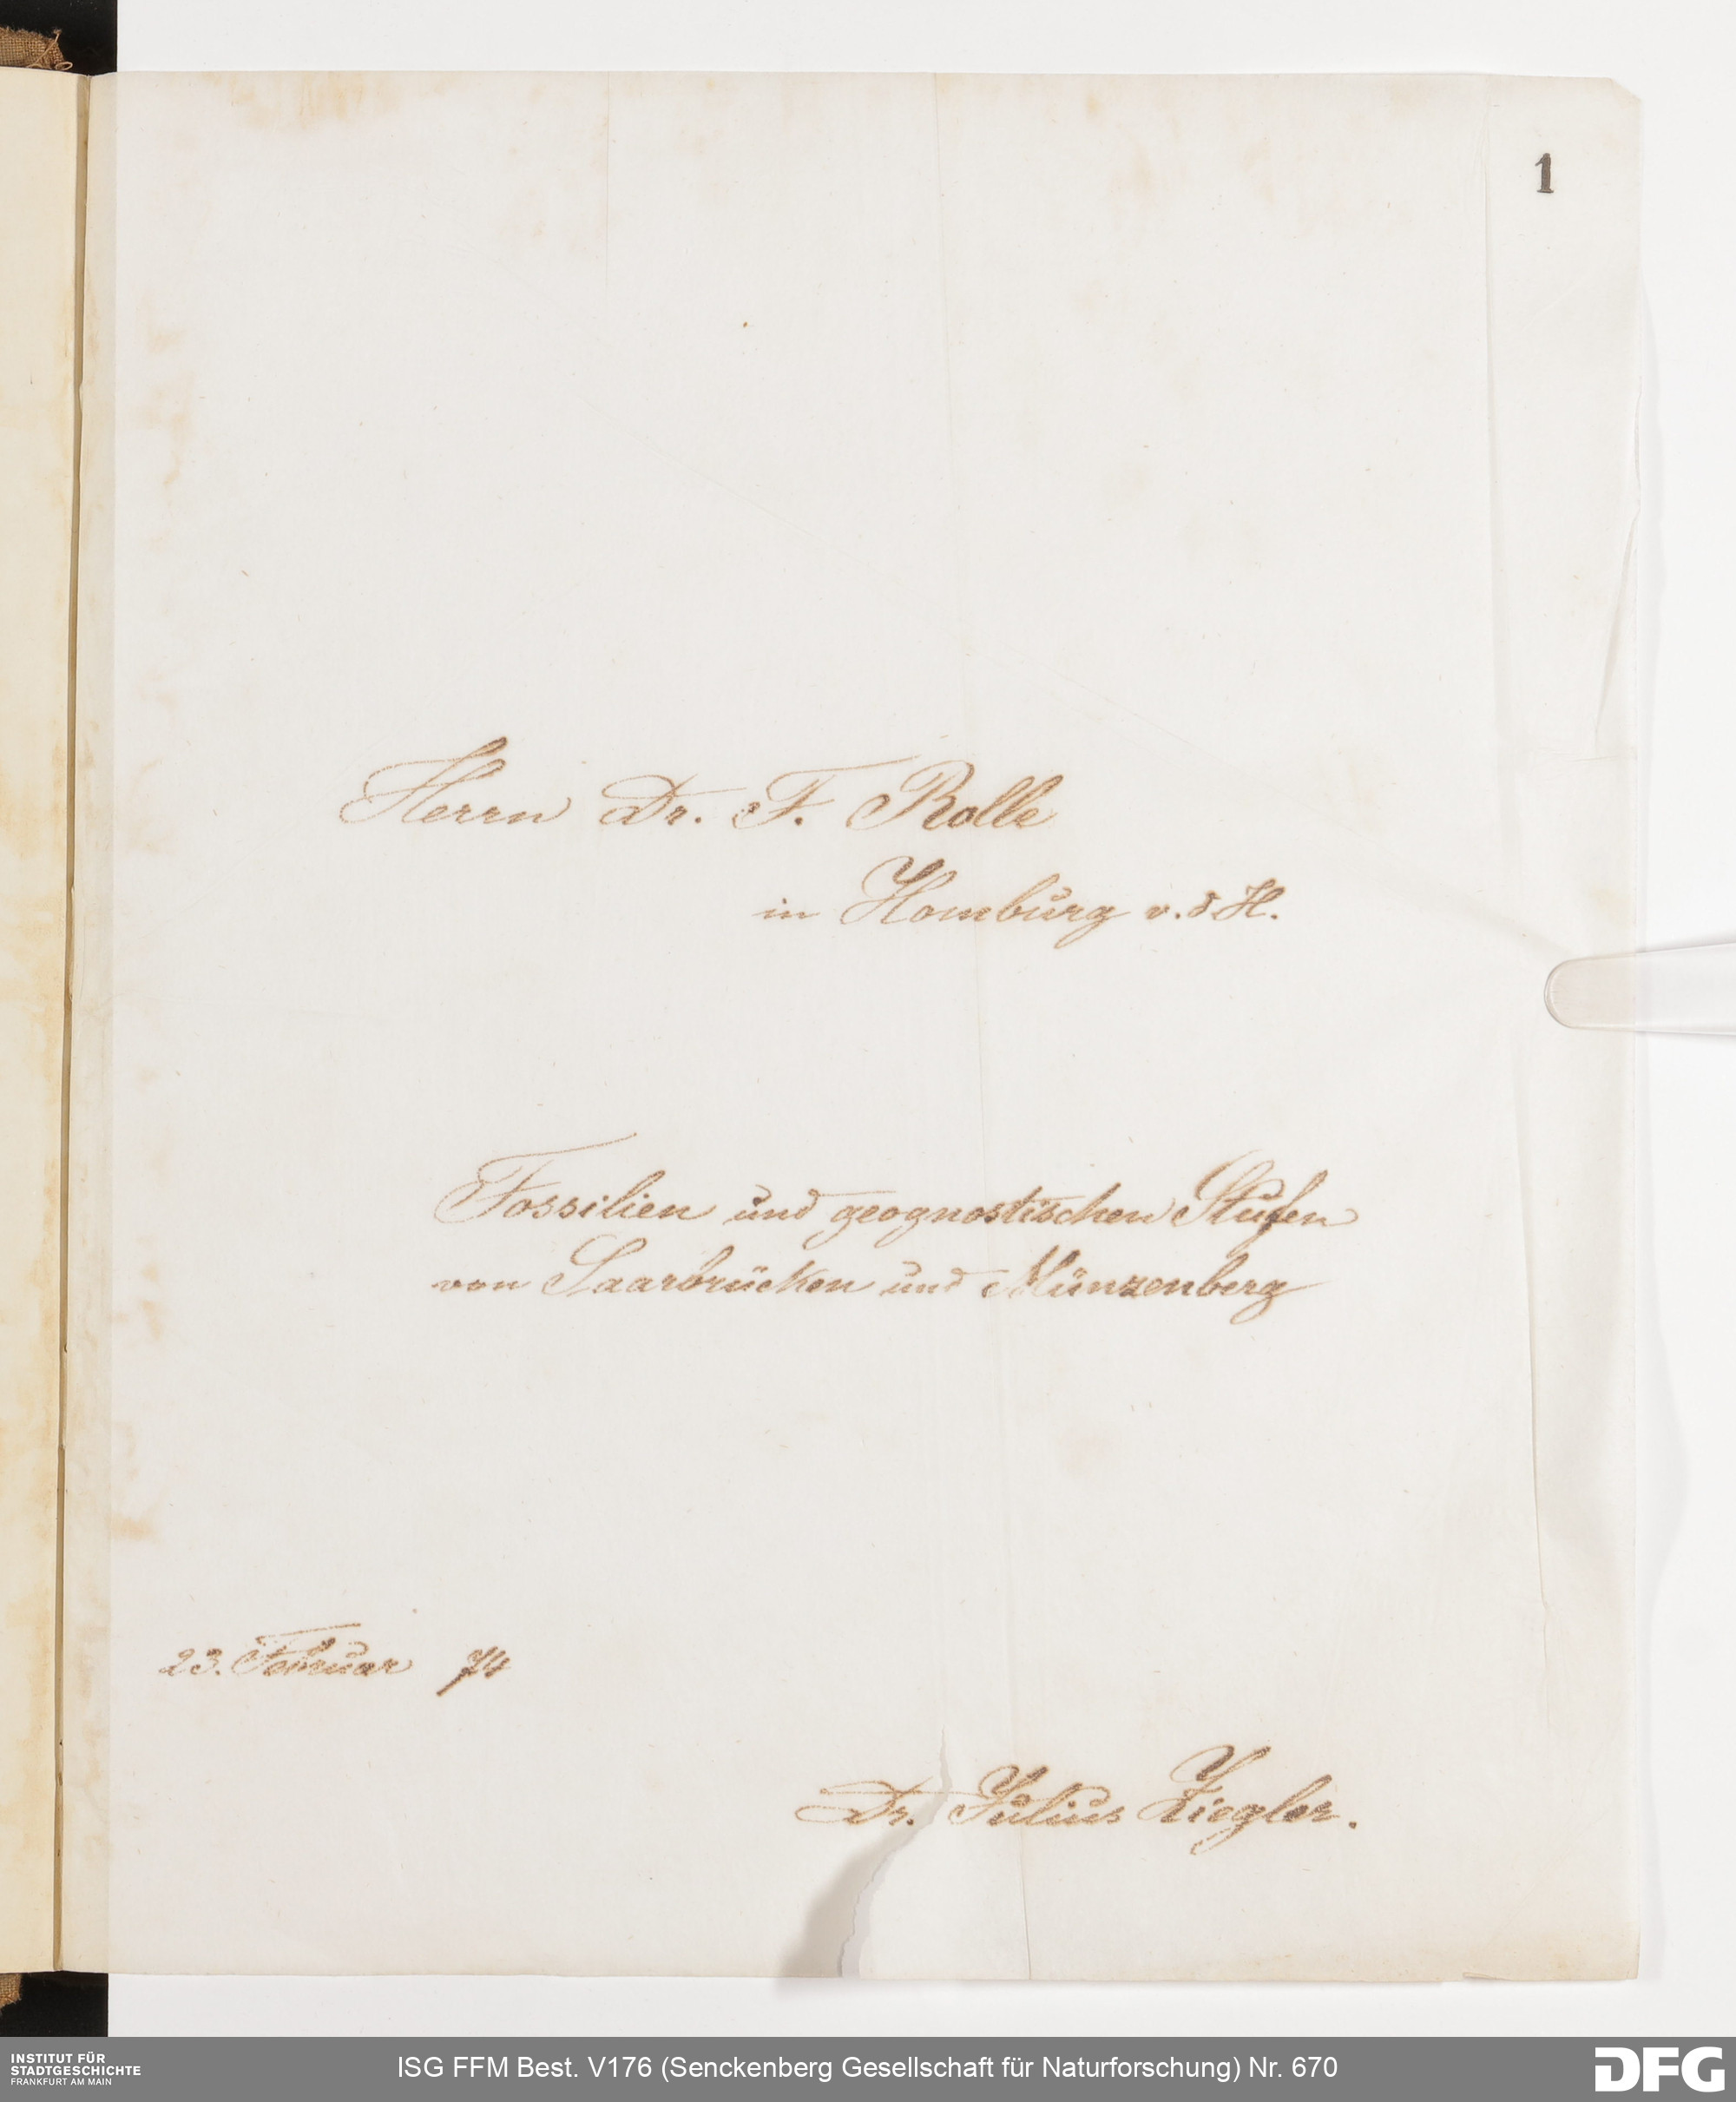 1
Herrn Dr. F. Rolle
in Homburg v. d H.
Fossilien und geognostischen Stufen
von Saarbrücken und Münzenberg
23. Februar 74
Dr. Julius Ziegler.
INSTITUT FÜR
STADTGESCHICHTE
FRANKFURT AM MAIN
ISG FFM Best. V176 (Senckenberg Gesellschaft für Naturforschung) Nr. 670
DFG